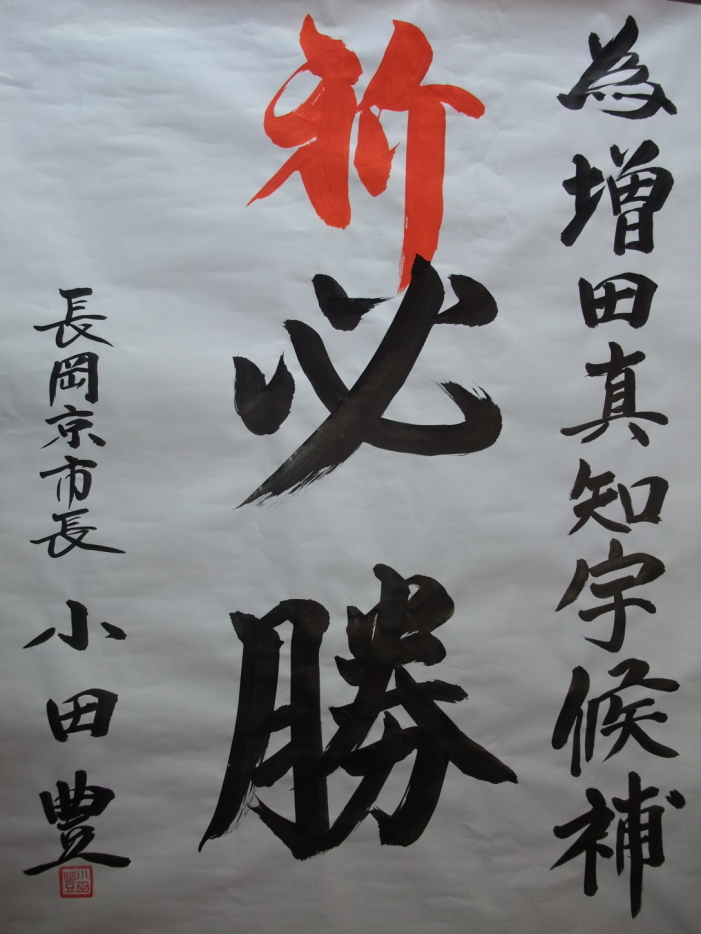 為増田真知宇候補
祈必勝
長岡京市長 小田豊